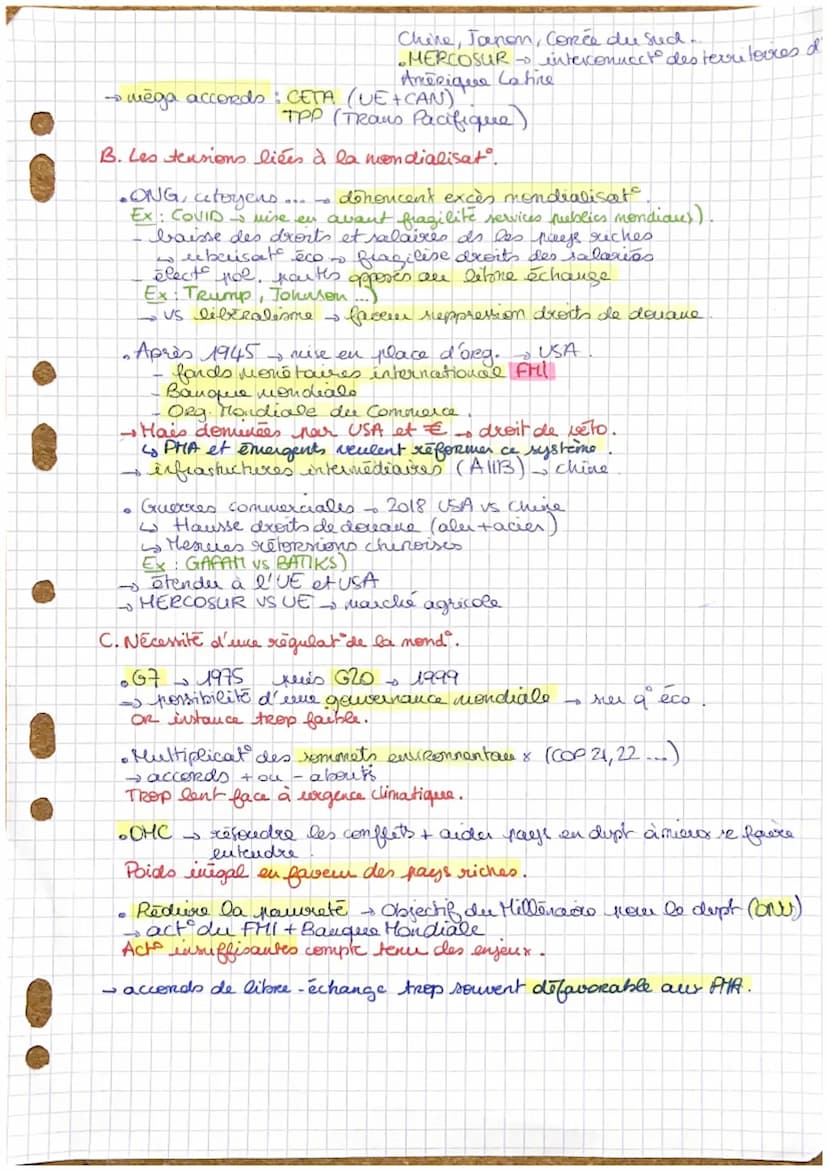 Chine, Japon, Corée du Sud..
• MERCOSUR → interconnect° des territoires d'
Amérique Latine
→ méga accords : CETA (UE + CAN)
TPP (Trans Pacifique)
B. Les tensions liées à la mondialisat°.
• ONG, citoyens ... → dénoncent excès mondialisat°.
Ex : COVID → mise en avant fragilité services publics mondiaux).
- baisse des droits et salaires ds les pays riches
↳ uberisat° éco → fragilise droits des salariés
- élect° pol. partis opposés au libre échange
Ex : Trump, Johnson ...)
→ VS libéralisme → faveur suppression droits de douane.
• Après 1945 → mise en place d'org. → USA.
- fonds monétaires international FMI
- Banque mondiale
- Org. Mondiale du Commerce.
→ Mais dominées par USA et € → droit de véto.
↳ PMA et émergents veulent réformer ce système.
→ infrastuctures intermédiaires (AIIB) → chine.
• Guerres commerciales → 2018 USA vs Chine
↳ Hausse droits de douane (alu + acier)
↳ Mesures rétorsions chinoises
Ex : GAFAM vs BATIKS)
→ étendu à l'UE et USA
→ MERCOSUR VS UE → marché agricole
C. Nécessité d'une régulat° de la mond°.
• G7 → 1975 puis G20 → 1999
→ possibilité d'une gouvernance mondiale → sur q° éco.
OR instance trop faible.
• Multiplicat° des sommets environnentaux (COP 21, 22 ...)
→ accords + ou - aboutis
Trop lent face à urgence climatique.
• OMC → résoudre les conflits + aider pays en dvpt à mieux se faire
entendre.
Poids inégal en faveur des pays riches.
• Réduire la pauvreté → Objectif du Millénaire pour le dvpt (ONU)
→ act° du FMI + Banque Mondiale
Act° insuffisantes compte tenu des enjeux.
→ accords de libre-échange trop souvent défavorable aux PMA.